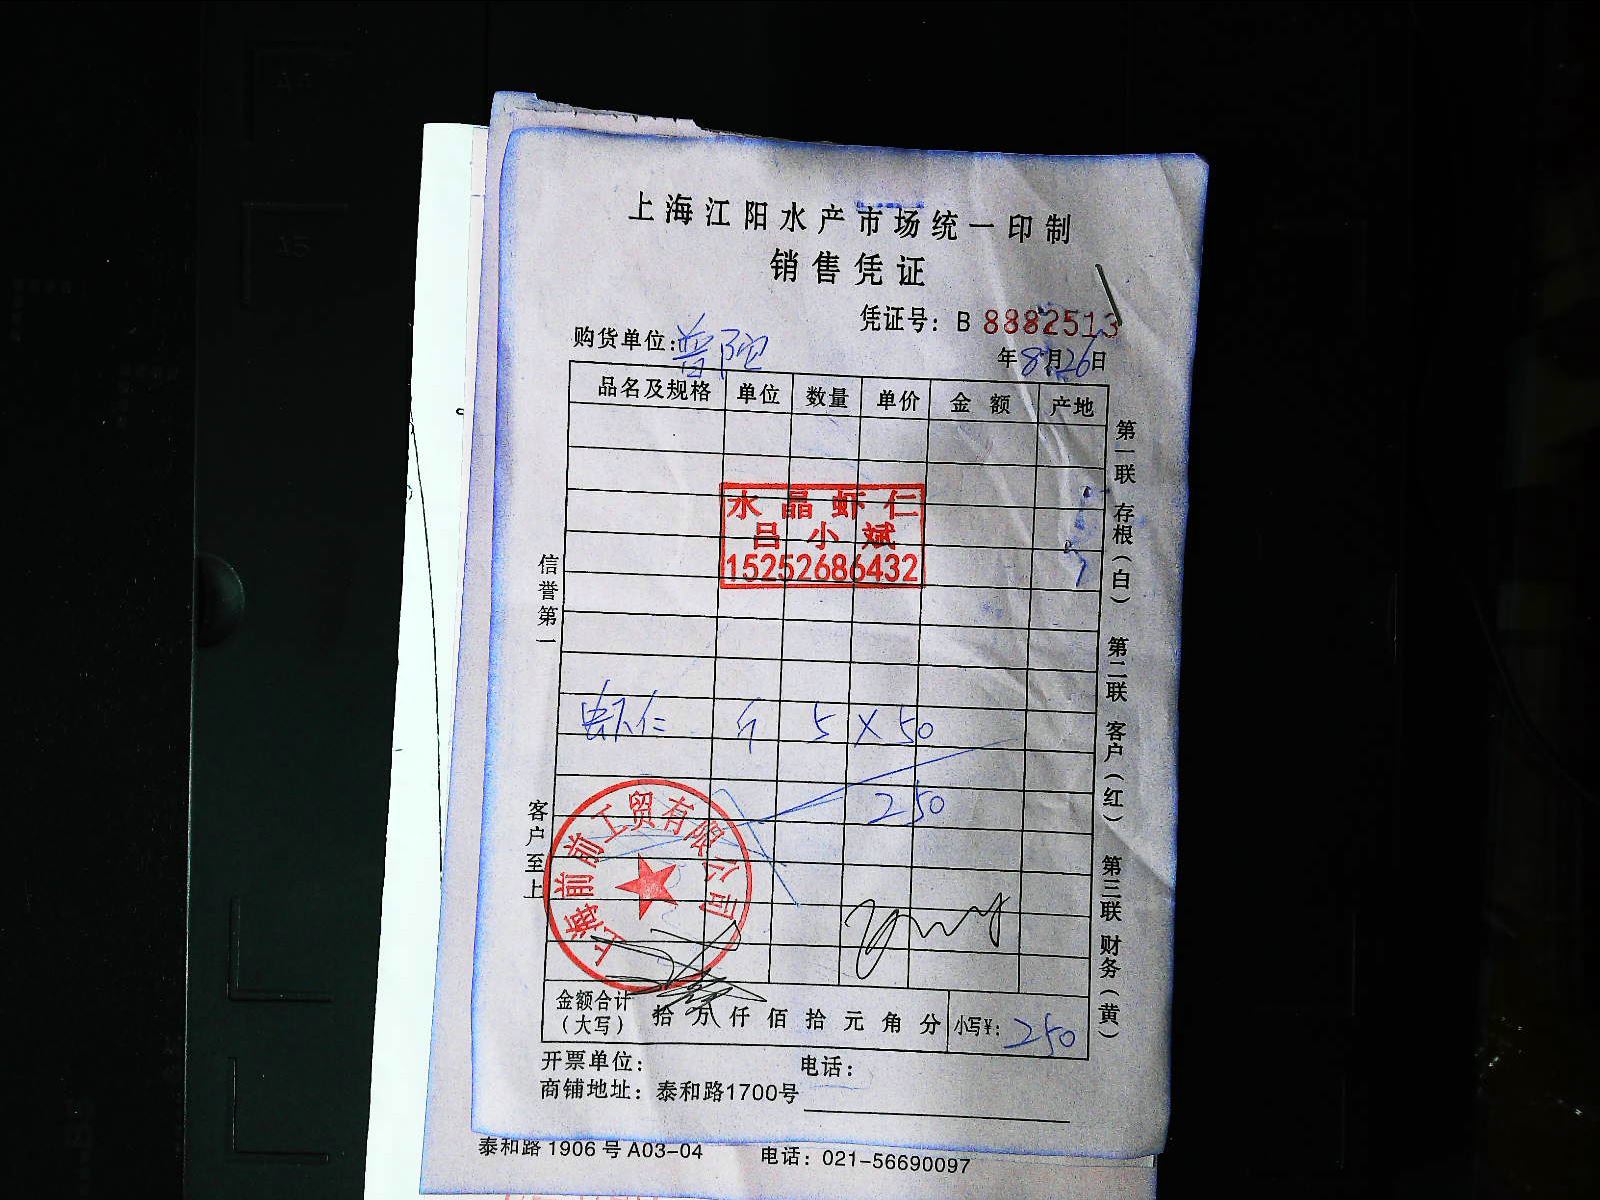 上海江阳水产市场统一印制
销售凭证
凭证号：B 8882513
购货单位：普陀
年8月26日
品名及规格 单位 数量 单价 金额 产地
水晶虾仁
吕小斌
15252686432
虾仁 斤 5 X 50
250
上海前前工贸有限公司
金额合计（大写） 拾万仟佰拾元角分 小写¥：250
开票单位： 电话：
商铺地址：泰和路1700号
信誉第一
客户至上
第一联 存根（白） 第二联 客户（红） 第三联 财务（黄）
泰和路1906号A03-04 电话：021-56690097